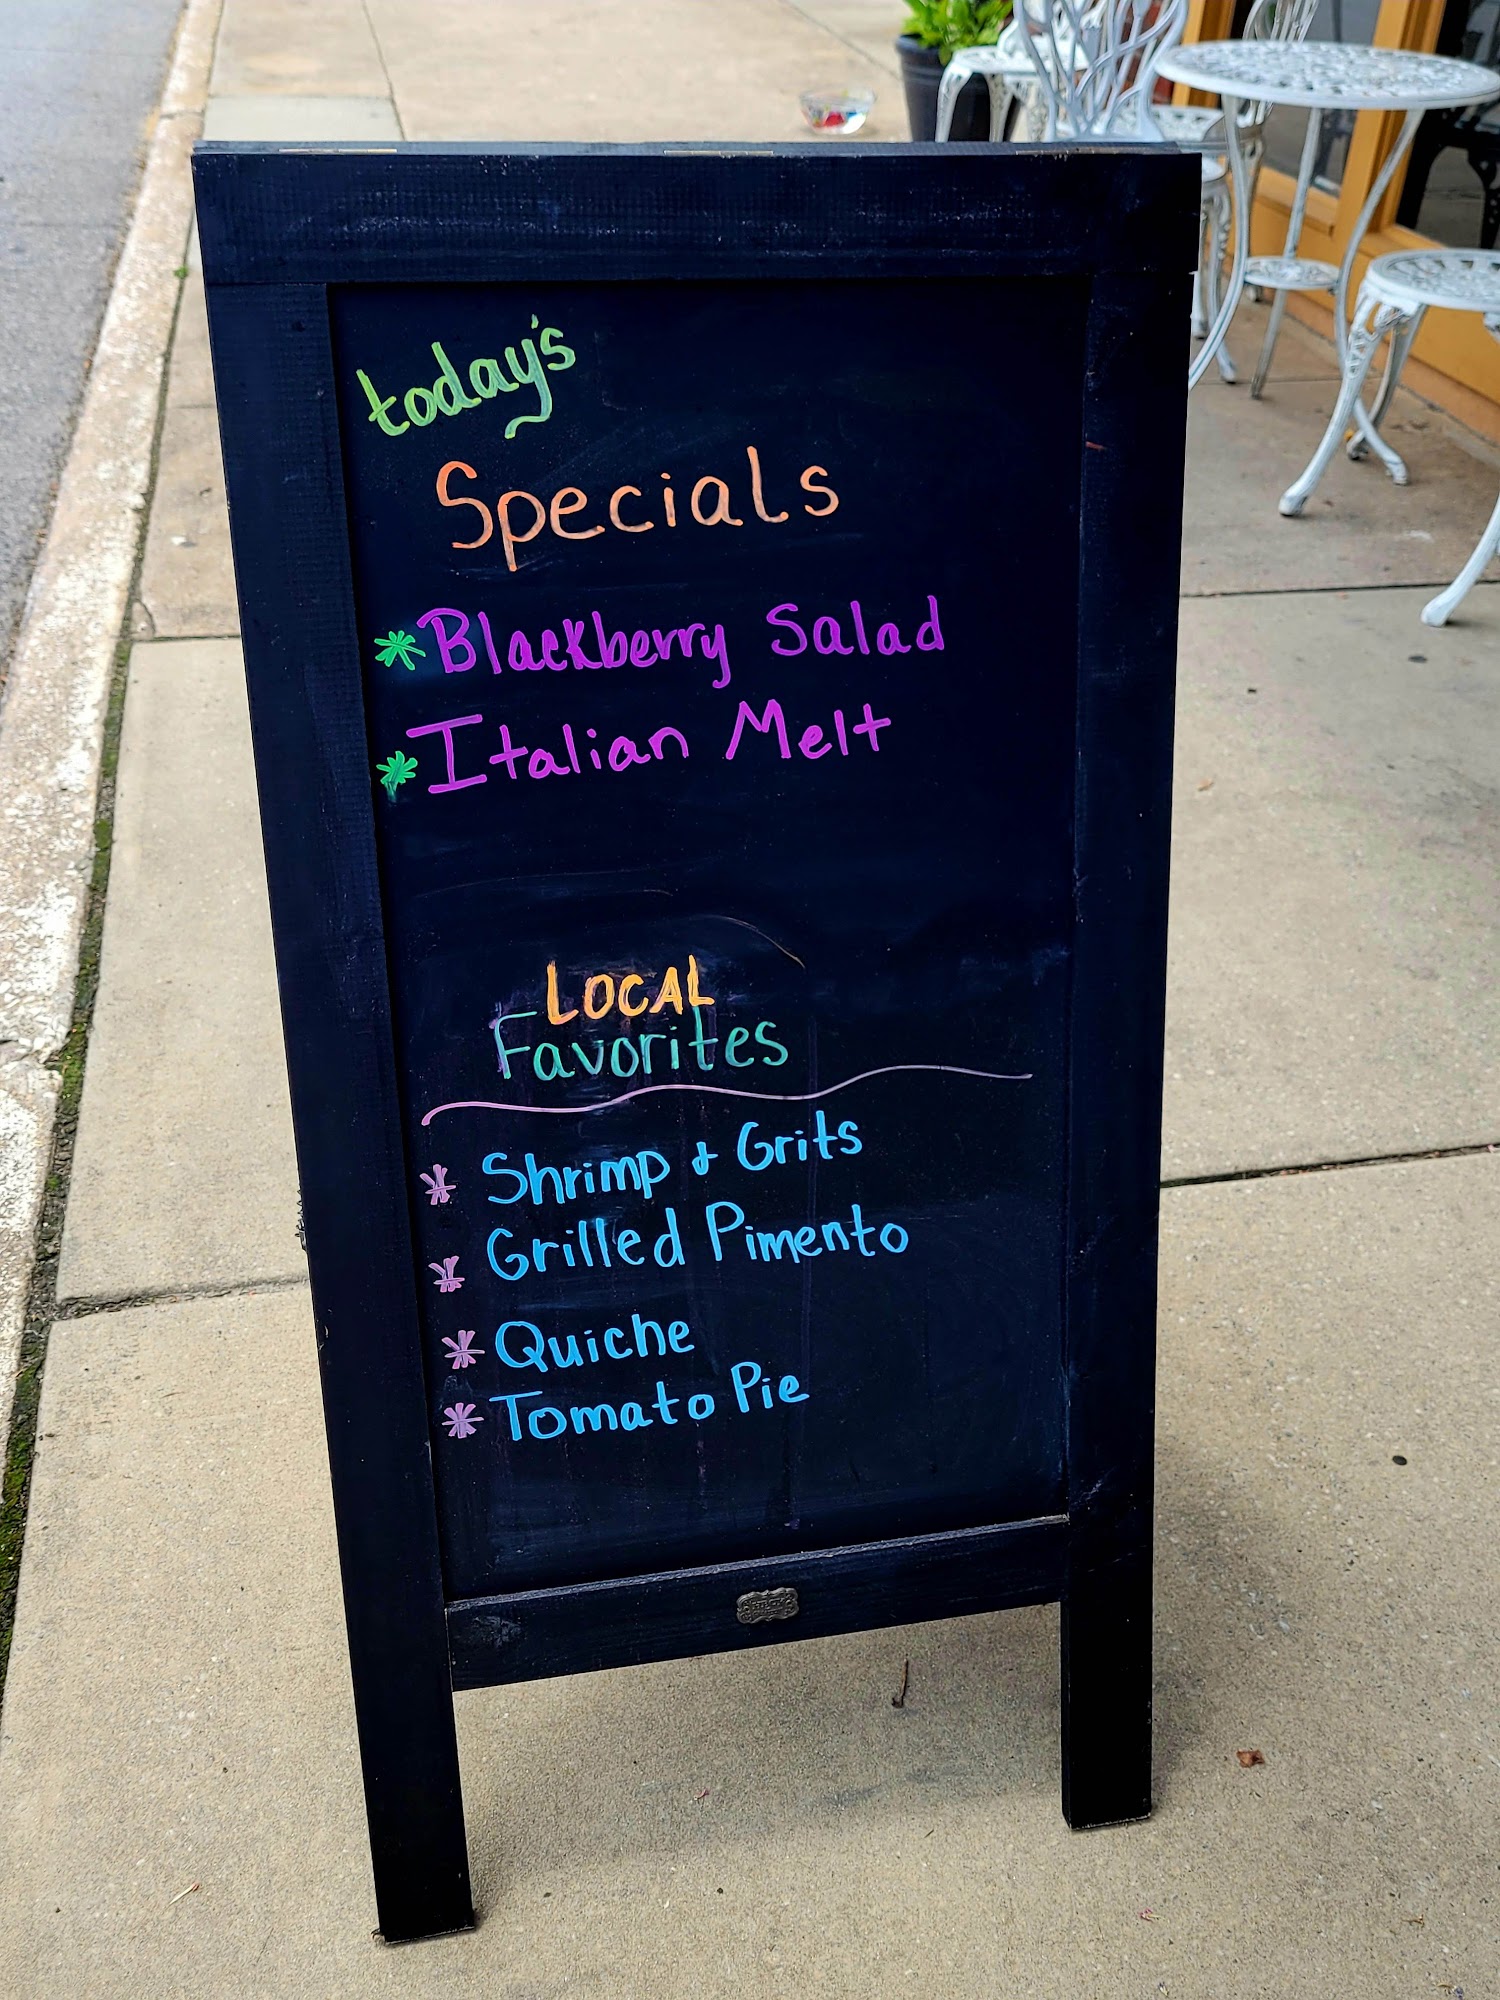 today's
Specials
* Blackberry Salad
* Italian Melt
LOCAL
Favorites
* Shrimp & Grits
* Grilled Pimento
* Quiche
* Tomato Pie